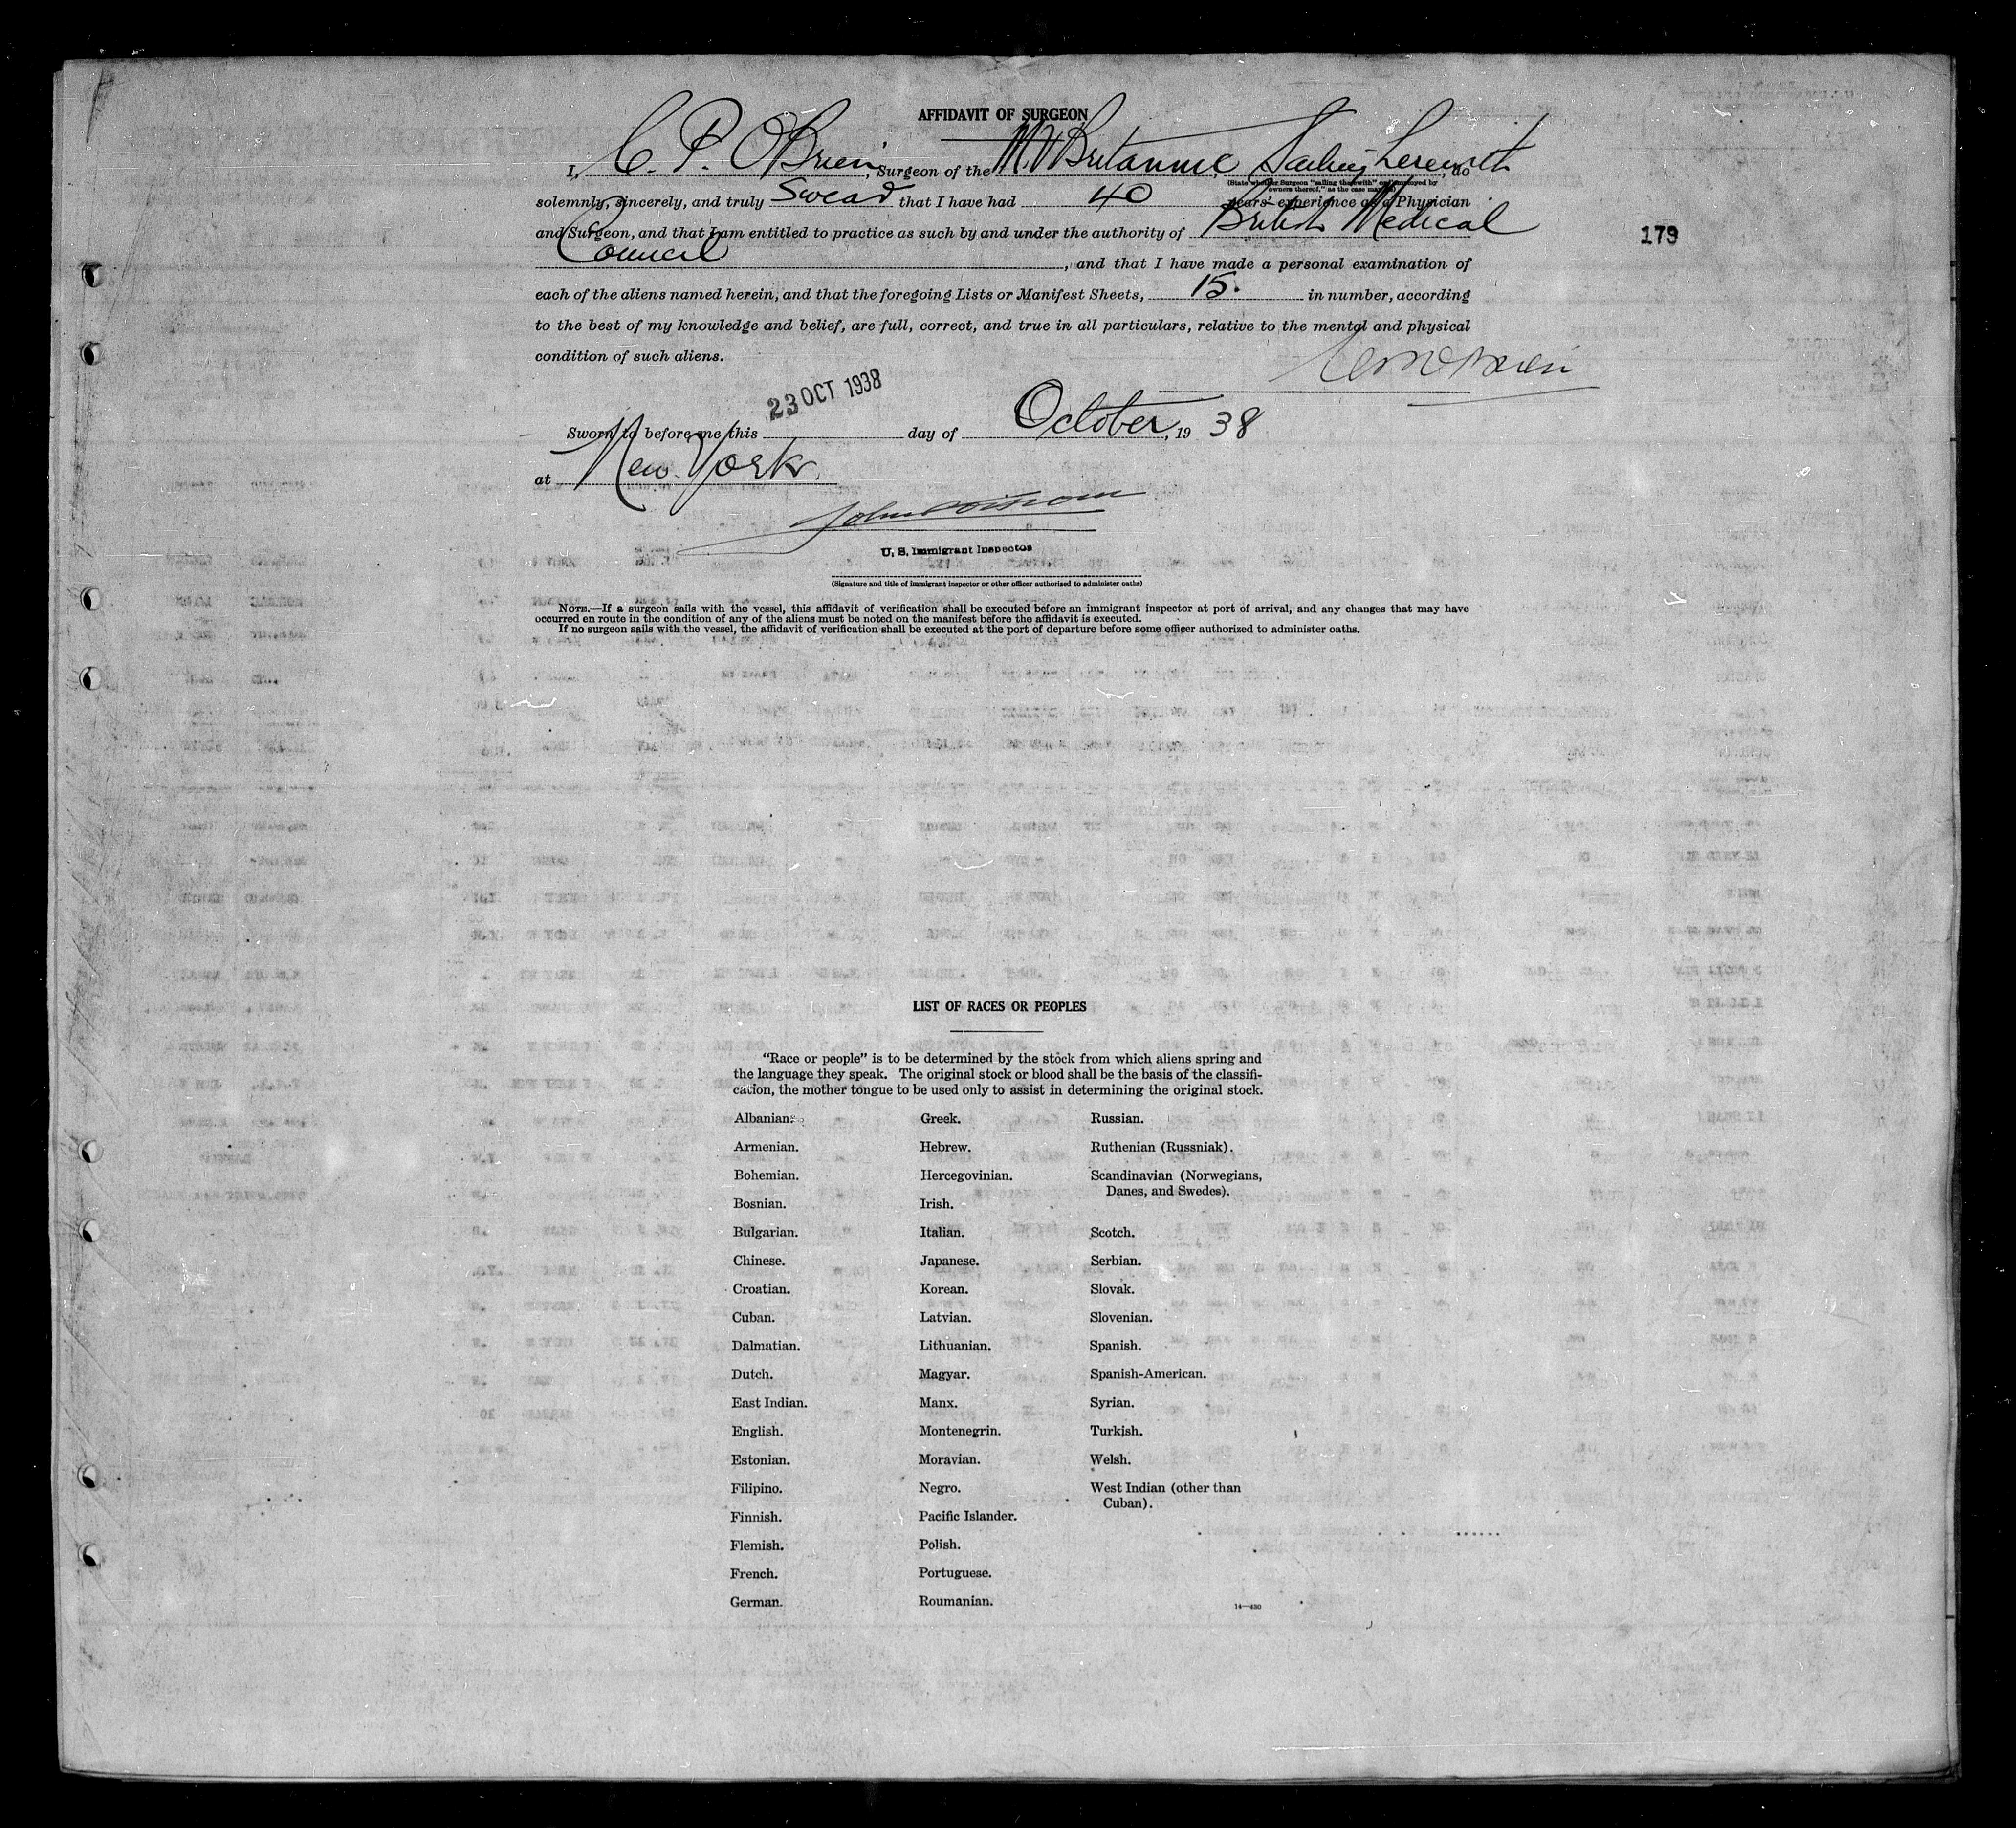 AFFIDAVIT OF SURGEON
I, C. P. O'Brien, Surgeon of the M.V Britannic, Sailing herewith, do
(State whether Surgeon "sailing therewith" or "employed by
owners thereof," as the case may be)
solemnly, sincerely, and truly Swear that I have had 40 years' experience as a Physician
and Surgeon, and that I am entitled to practice as such by and under the authority of British Medical
Council, and that I have made a personal examination of
each of the aliens named herein, and that the foregoing Lists or Manifest Sheets, 15. in number, according
to the best of my knowledge and belief, are full, correct, and true in all particulars, relative to the mental and physical
condition of such aliens.
179
23 OCT 1938
Sworn to before me this day of October, 19 38
at New York
John
U. S. Immigrant Inspector
(Signature and title of immigrant inspector or other officer authorized to administer oaths)
NOTE.—If a surgeon sails with the vessel, this affidavit of verification shall be executed before an immigrant inspector at port of arrival, and any changes that may have
occurred en route in the condition of any of the aliens must be noted on the manifest before the affidavit is executed.
If no surgeon sails with the vessel, the affidavit of verification shall be executed at the port of departure before some officer authorized to administer oaths.
LIST OF RACES OR PEOPLES
"Race or people" is to be determined by the stock from which aliens spring and
the language they speak. The original stock or blood shall be the basis of the classifi-
cation, the mother tongue to be used only to assist in determining the original stock.
Albanian.
Armenian.
Bohemian.
Bosnian.
Bulgarian.
Chinese.
Croatian.
Cuban.
Dalmatian.
Dutch.
East Indian.
English.
Estonian.
Filipino.
Finnish.
Flemish.
French.
German.
Greek.
Hebrew.
Hercegovinian.
Irish.
Italian.
Japanese.
Korean.
Latvian.
Lithuanian.
Magyar.
Manx.
Montenegrin.
Moravian.
Negro.
Pacific Islander.
Polish.
Portuguese.
Roumanian.
Russian.
Ruthenian (Russniak).
Scandinavian (Norwegians,
Danes, and Swedes).
Scotch.
Serbian.
Slovak.
Slovenian.
Spanish.
Spanish-American.
Syrian.
Turkish.
Welsh.
West Indian (other than
Cuban).
14—430